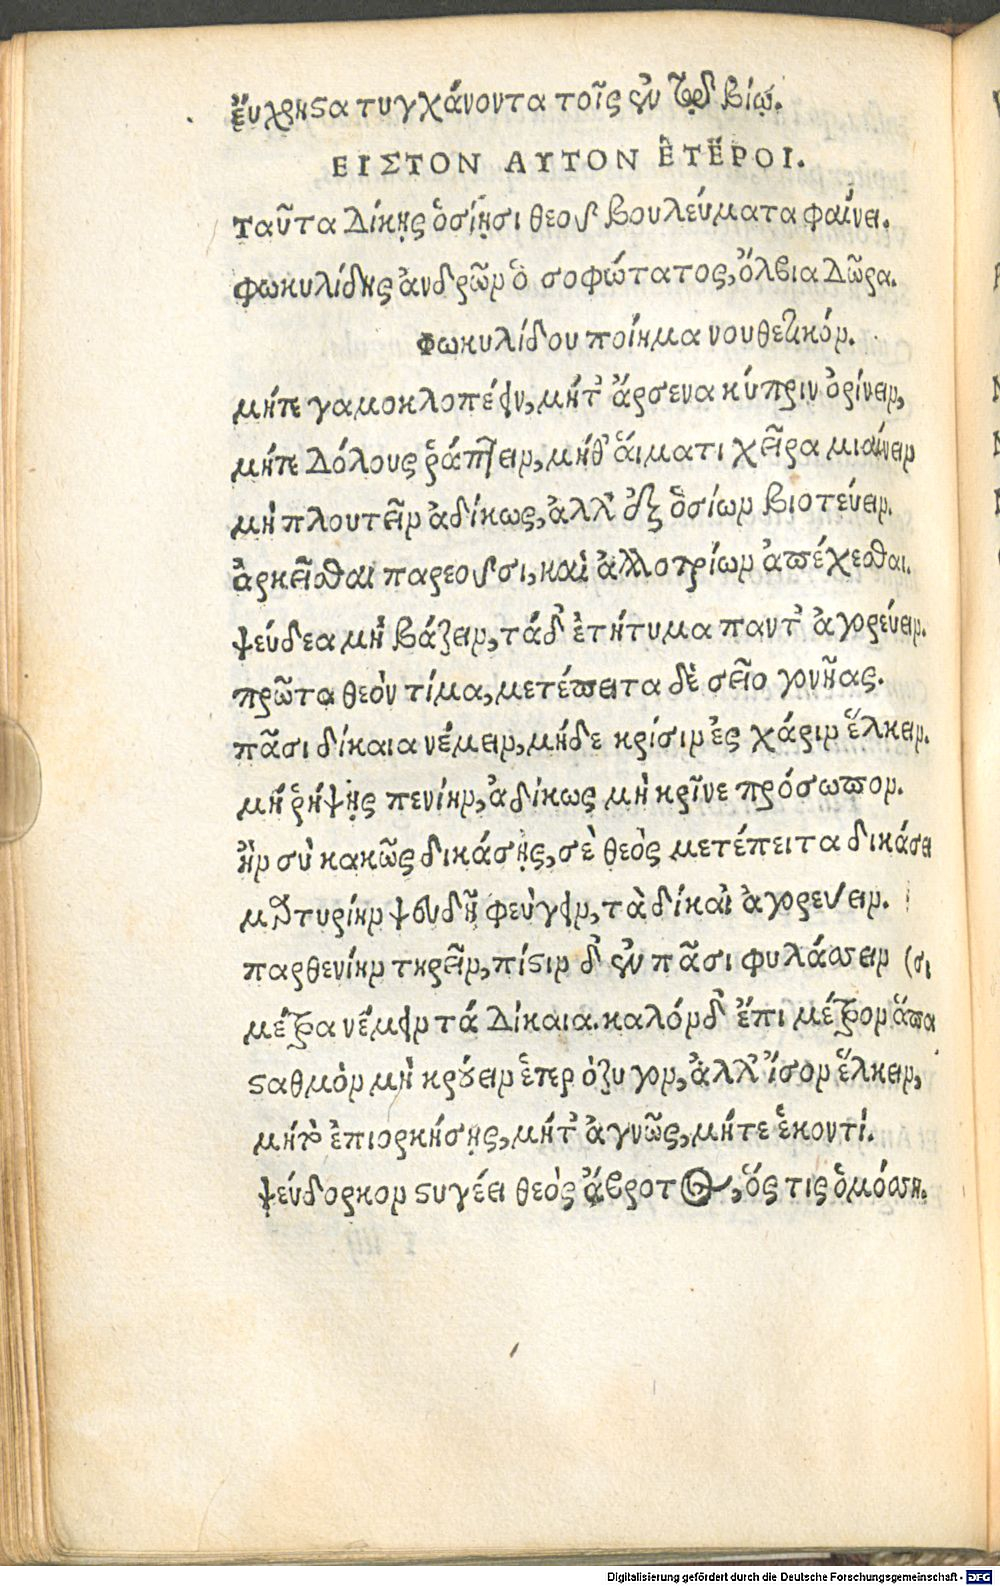 ἔυχρηστα τυγχάνοντα τοῖς ἐν τῷδε βίῳ.
ΕΙΣΤΟΝ ΑΥΤΟΝ ἙΤΕΡΟΙ.
Ταῦτα Δίκῃς ὁσίῃσι θεοῦ βουλεύματα φαίνει.
φωκυλίδης ἀνδρῶν ὁ σοφώτατος, ὄλβια Δῶρα.
Φωκυλίδου ποίημα νουθετικόν.
μήτε γαμοκλοπέειν, μήτ' ἄρσενα κύπριν ὀρίνειν,
μήτε Δόλους ῥάπτειν, μήθ' ἅιματι χεῖρα μιαίνειν
μὴ πλουτεῖν ἀδίκως, ἀλλ' ἐξ ὁσίων βιοτεύειν.
ἀρκεῖσθαι παρεοῦσι, καὶ ἀλλοτρίων ἀπέχεσθαι.
ψεύδεα μὴ βάζειν, τάδ' ἐτήτυμα παντ' ἀγορεύειν.
πρῶτα θεὸν τίμα, μετέπειτα δὲ σεῖο γονῆας.
πᾶσι δίκαια νέμειν, μήδε κρίσιν ἐς χάριν ἕλκειν.
μὴ ῥήψῃς πενίην, ἀδίκως μὴ κρῖνε πρόσωπον.
ἢν σὺ κακῶς δικάσῃς, σὲ θεὸς μετέπειτα δικάσει
μαρτυρίην ψευδῆ φεύγειν, τὰ δίκαι' ἀγορεύειν.
παρθενίην τηρεῖν, πίστιν δ' ἐν πᾶσι φυλάσσειν (σι
μέτρα νέμειν τά Δίκαια. καλόν δ' ἔπι μέτρον ἅπα
σταθμὸν μὴ κρούειν ἑτερόζυγον, ἀλλ' ἴσον ἕλκειν,
μήτ' ἐπιορκήσῃς, μήτ' ἀγνῶς, μήτε ἑκοντί.
ψεύδορκον στυγέει θεὸς ἄβροτος, ὅς τις ὁμόσση.
Digitalisierung gefördert durch die Deutsche Forschungsgemeinschaft - DFG